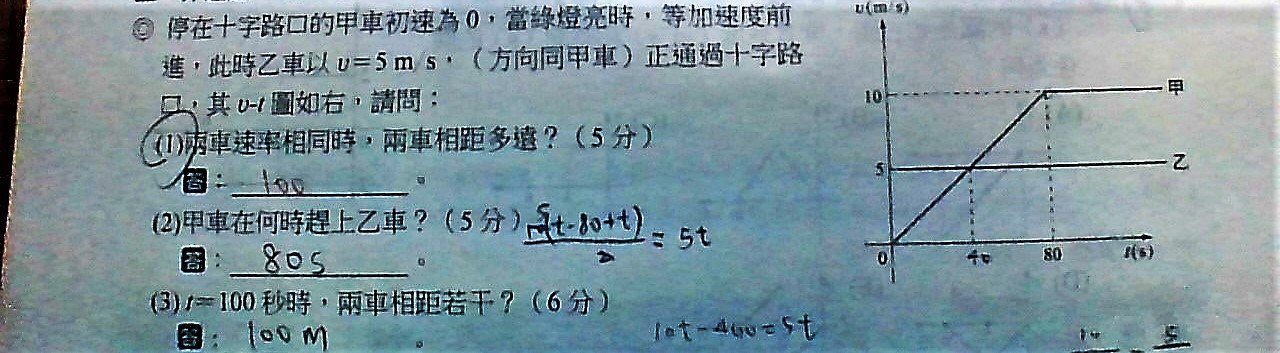 ◎ 停在十字路口的甲車初速為0,當綠燈亮時,等加速度前
進,此時乙車以 υ=5 m s,(方向同甲車)正通過十字路
口,其 υ-t 圖如右,請問:
(1)兩車速率相同時,兩車相距多遠?(5分)
答: 100 。
(2)甲車在何時趕上乙車?(5分)
(t-80+t)
2
= 5t
答: 80s 。
(3) t=100 秒時,兩車相距若干?(6分)
答: 100 M 。
10t-400=5t
υ(m/s)
10
甲
5
乙
0
40
80
t(s)
10
=
5